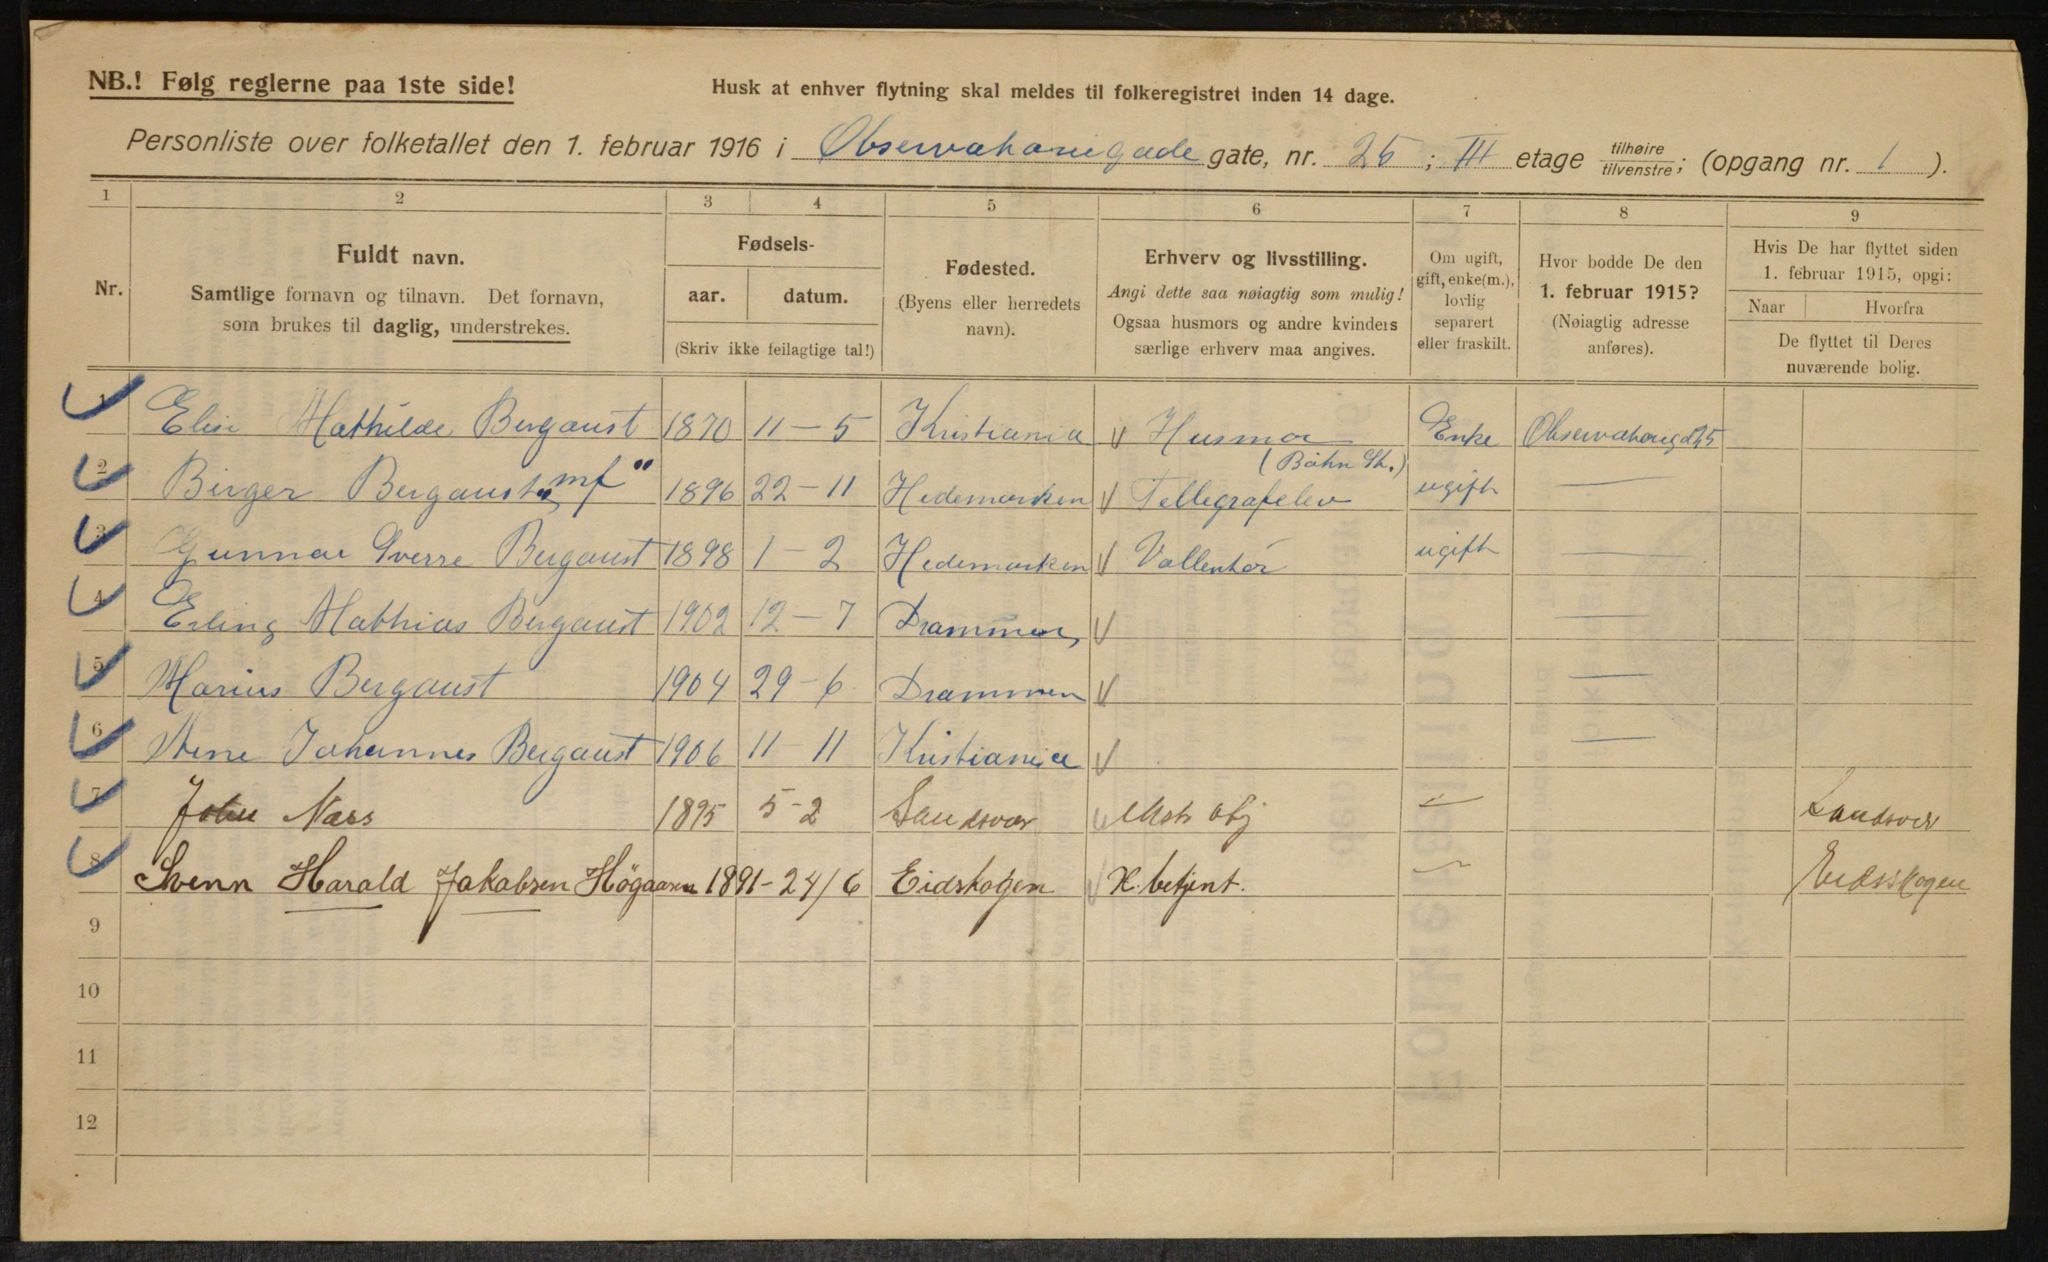 NB.! Følg reglerne paa 1ste side!
Husk at enhver flytning skal meldes til folkeregistret inden 14 dage.
Personliste over folketallet den 1. februar 1916 i Observatoriegade gate, nr. 25 ; III etage tilhøire tilvenstre ; (opgang nr. 1 ).
1 2 3 4 5 6 7 8 9
Nr.
Fuldt navn.
Samtlige fornavn og tilnavn. Det fornavn,
som brukes til daglig, understrekes.
Fødsels-
aar. datum.
(Skriv ikke feilagtige tal!)
Fødested.
(Byens eller herredets
navn).
Erhverv og livsstilling.
Angi dette saa nøiagtig som mulig!
Ogsaa husmors og andre kvinders
særlige erhverv maa angives.
Om ugift,
gift, enke(m.),
lovlig
separert
eller fraskilt.
Hvor bodde De den
1. februar 1915?
(Nøiagtig adresse
anføres).
Hvis De har flyttet siden
1. februar 1915, opgi:
Naar Hvorfra
De flyttet til Deres
nuværende bolig.
1 Elise Mathilde Bergaust 1870 11-5 Kristiania Husmor Enke Observatoriegd 25
2 Birger Bergaust "mf" 1896 22-11 Hedemarken Tellegrafelev ugift —
3 Gunnar Sverre Bergaust 1898 1-2 Hedemarken ugift —
4 Erling Mathias Bergaust 1902 12-7 Drammen —
5 Marius Bergaust 1904 29-6 Drammen —
6 Arne Johannes Bergaust 1906 11-11 Kristiania —
7 John Næss 1895 5-2 Sandsvær — Sandsvær
8 Svenn Harald Jakobsen Högaasen 1891-24/6 Eidskogen K. betjent. — Eidsskogen
9
10
11
12